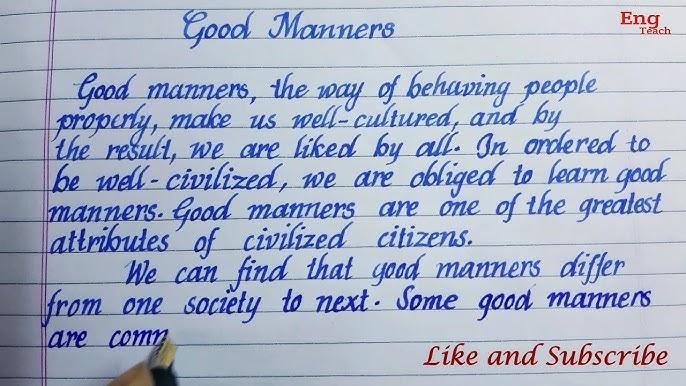 Good Manners
Eng
Teach
Good manners, the way of behaving people
properly, make us well-cultured, and by
the result, we are liked by all. In ordered to
be well-civilized, we are obliged to learn good
manners. Good manners are one of the greatest
attributes of civilized citizens.
We can find that good manners differ
from one society to next. Some good manners
are comm
Like and Subscribe